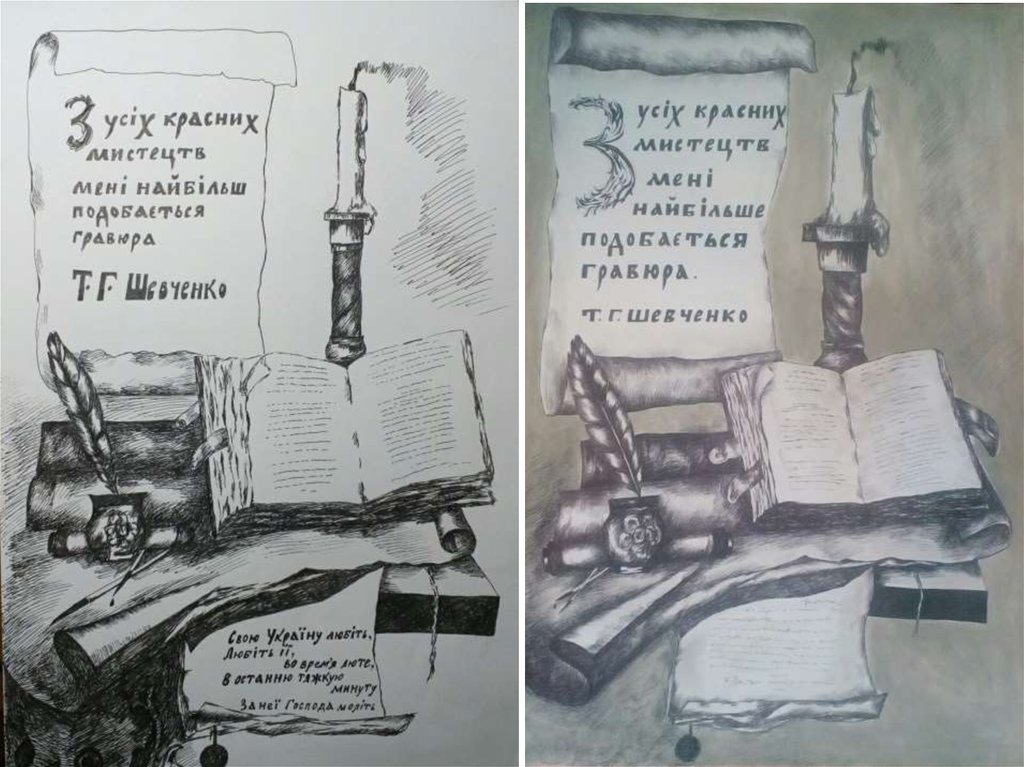 З усіх красних
мистецтв
мені найбільш
подобається
гравюра
Т.Г. Шевченко
Свою Україну любіть,
Любіть її,
во врем'я люте,
В останню тяжкую
минуту
За неї Господа моліть
З усіх красних
мистецтв
мені
найбільше
подобається
гравюра.
Т.Г. Шевченко